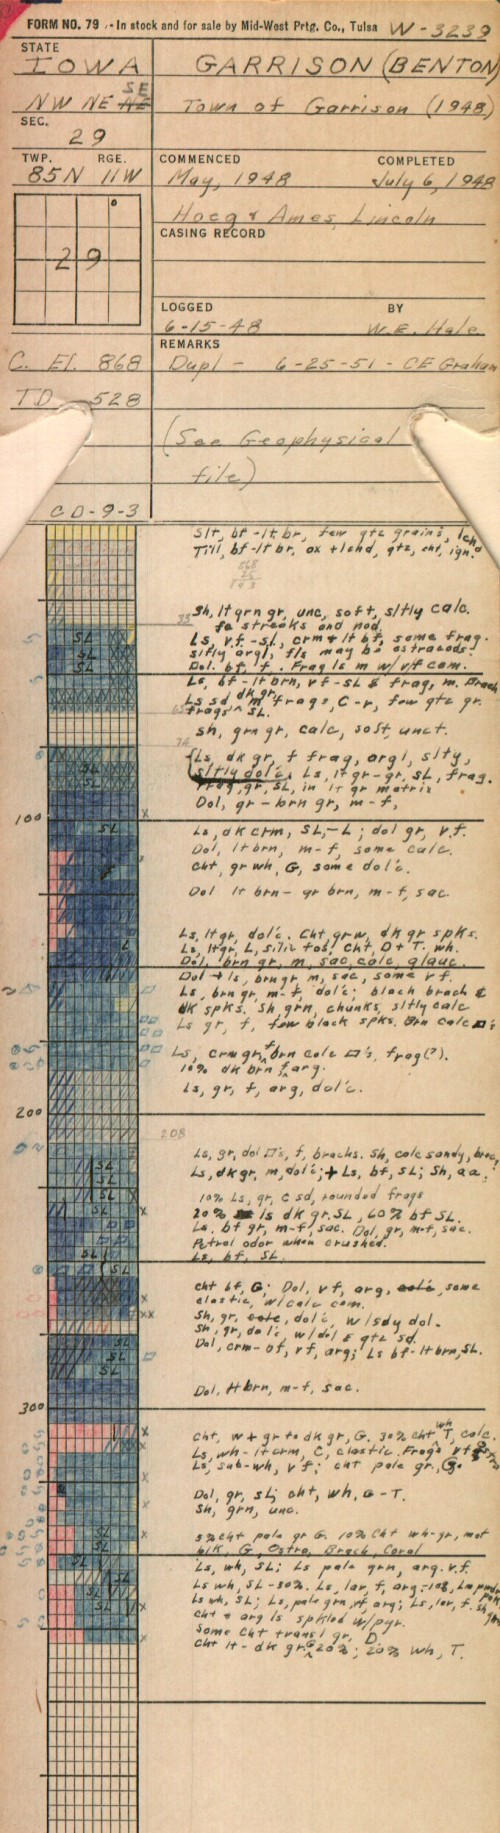 FORM NO. 79 - In stock and for sale by Mid-West Prtg. Co., Tulsa W-3239
STATE
IOWA GARRISON (BENTON)
SE
NW NE NE Town of Garrison (1948)
SEC.
29
TWP. RGE. COMMENCED COMPLETED
85N 11W May, 1948 July 6, 1948
Hoeg & Ames, Lincoln
CASING RECORD
29
LOGGED BY
6-15-48 W.E. Hale
REMARKS
C. El. 868 Dupl - 6-25-51 - CE Graham
TD 528
(See Geophysical
file)
CD-9-3
Slt, bf-lt br, few qtz grains, lch
Till, bf-lt br, ox + lchd, qtz, cht, ign.
35
Sh, lt grn gr, unc, soft, sltly calc.
fe streaks and nod.
Ls, vf.-SL, crm & lt bf, some frag.
sltly argl, fls may be ostracods.
Dol. bf, f. Frag ls m w/ vf com.
Ls, bf-lt brn, vf-SL & frag, m. Brach
Ls sd m dk gr frags, C-r, few qtz gr.
frags SL.
sh, grn gr, calc, soft, unct.
74
Ls, dk gr, f frag, argl, slty,
sltly dol'c. Ls, lt gr-gr, SL, frag.
Frag, gr, SL, in lt gr matrix
Dol, gr-brn gr, m-f,
100
Ls, dk crm, SL,-L; dol gr, v.f.
Dol, lt brn, m-f, some calc.
cht, gr wh, G, some dol'c.
Dol lt brn-gr brn, m-f, sac.
Ls, lt gr, dol'c. Cht gr w, dk gr spks.
Ls, lt gr, L, silic fos, Cht, D+T. wh.
Dol, brn gr, m, sac, calc, glauc.
Dol + ls, brn gr m, sac, some vf.
Ls, brn gr, m-f, dol'c; black brach &
dk spks. Sh, grn, chunks, sltly calc
Ls gr, f, few black spks. Brn calc □'s
Ls, crm gr, f, brn calc □'s, frag(?).
10% dk brn f, arg.
Ls, gr, f, arg, dol'c.
200
208
Ls, gr, dol □'s, f, brachs. Sh, calc sandy, brac,
Ls, dk gr, m, dol'c; + Ls, bf, SL; Sh, aa.
10% Ls, gr, c sd, rounded frags
20% ls dk gr, SL, 60% bf SL.
Ls, bf gr, m-f, sac. Dol, gr, m-f, sac.
Petrol odor when crushed.
Ls, bf, SL.
cht bf, G; Dol, vf, arg, calc, some
clastic, w/calc com.
Sh, gr, calc, dol'c, w/sdy dol.
Sh, gr, dol'c w/dol & qtz sd.
Dol, crm-bf, vf, arg; Ls bf-lt brn, SL.
Dol, lt brn, m-f, sac.
300
cht, w + gr to dk gr, G. 30% cht wh T, calc.
Ls, wh-lt crm, C, clastic. Frags vf
Ls, sub-wh, vf; cht pale gr, G.
Dol, gr, SL; cht, wh, G-T.
Sh, grn, unc.
5% cht pale gr G. 10% Cht wh-gr, mot
blk, G, Ostra, Brach, Coral
Ls, wh, SL; Ls pale grn, arg. v.f.
Ls wh, SL-80%. Ls, lav, f, arg-10%, Ls
Ls wh, SL; Ls, pale grn, vf arg; Ls, lav, f. Sh, grn
cht & arg ls spkled w/pyr.
Some cht transl gr, D.
cht lt-dk gr, G 20%; 20% wh, T.